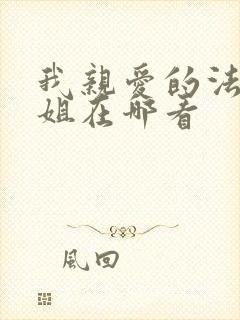 我親愛的法
姐在哪看
風回